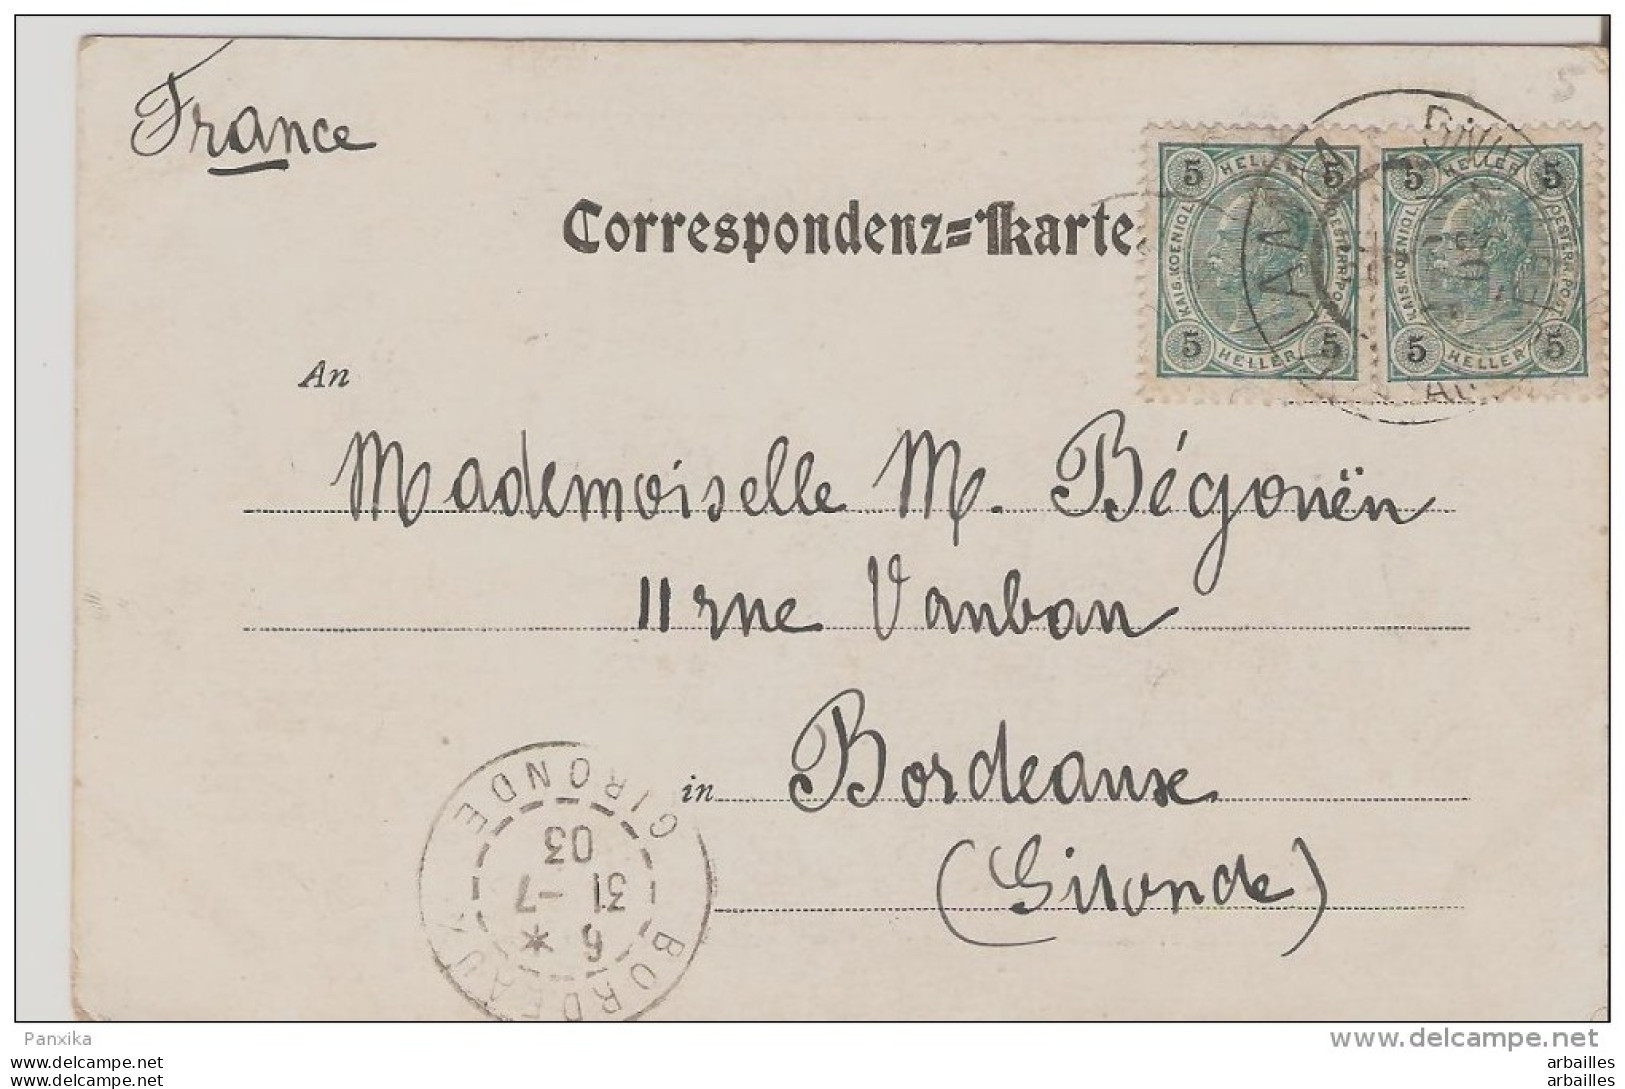 France
5
5 HELLER 5
5 HELLER 5
KAIS. KOENIGL.
KAIS. KOENIGL.
5 HELLER 5
5 HELLER 5
Correspondenz=Karte.
An
Mademoiselle M. Bégouën
11 rue Vauban
in Bordeaux
(Gironde)
BORDEAUX
GIRONDE
6 *
31 -7
03
Panxika
delcampe.net
www.delcampe.net
www.delcampe.net
arbailles
arbailles